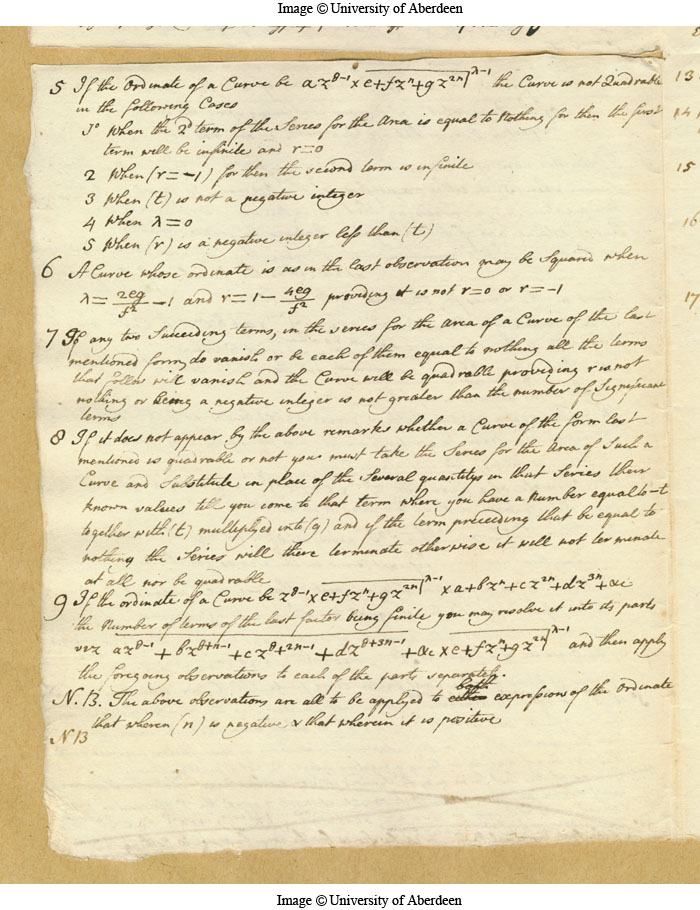 Image © University of Aberdeen
5 If the Ordinate of a Curve be az^{θ-1} × e+fz^n+gz^{2n}|^{λ-1} the Curve is not Quadrable
in the following Cases
1º When the 2d term of the Series for the Area is equal to Nothing for then the first
term will be infinite and r=0
2 When (r=-1) for then the second term is infinite
3 When (t) is not a negative integer
4 When λ=0
5 When (r) is a negative integer less than (t)
6 A Curve whose ordinate is as in the last observation may be Squared when
λ = 2eg/f² -1 and r=1- 4eg/f² providing it is not r=0 or r=-1
7 If any two Succeeding terms, in the series for the Area of a Curve of the last
mentioned form, do vanish or be each of them equal to nothing all the terms
that follow will vanish and the Curve will be quadrable providing r is not
nothing or Being a negative integer is not greater than the number of Significant
terms
8 If it does not appear by the above remarks whether a Curve of the form last
mentioned is quadrable or not you must take the Series for the Area of Such a
Curve and Substitute in place of the Several quantitys in that Series their
known values till you come to that term where you have a number equal to -t
together with (t) multiplyed into (g) and if the term preceeding that be equal to
nothing the Series will there terminate otherwise it will not terminate
at all nor be quadrable
9 If the ordinate of a Curve be z^{θ-1} × e+fz^n+gz^{2n}|^{λ-1} × a+bz^n+cz^{2n}+dz^{3n}+&c
the Number of terms of the last factor being finite you may resolve it into its parts
viz az^{θ-1} + bz^{θ+n-1} + cz^{θ+2n-1} + dz^{θ+3n-1} + &c × e+fz^n+gz^{2n}|^{λ-1} and then apply
the foregoing observations to each of the parts separately.
N.B. The above observations are all to be applyed to either both expressions of the Ordinate
that wherein (n) is negative & that wherein it is positive
NB
13
14
15
16
17
Image © University of Aberdeen